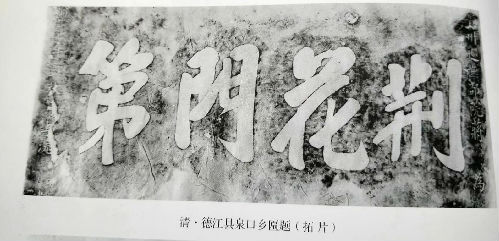 荆花門第
清·德江县泉口乡匾题（拓片）